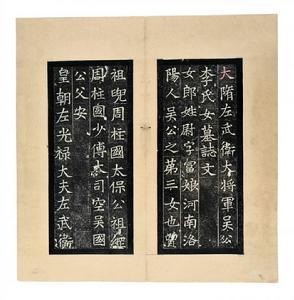 大隋左武衛大將軍吳公
李氏女墓誌文
女郎姓尉字富娘河南洛
陽人吳公之第三女也曾
祖兜周柱國太保公祖綱
周柱國少傅大司空吳國
公父安
皇朝左光祿大夫左武衛